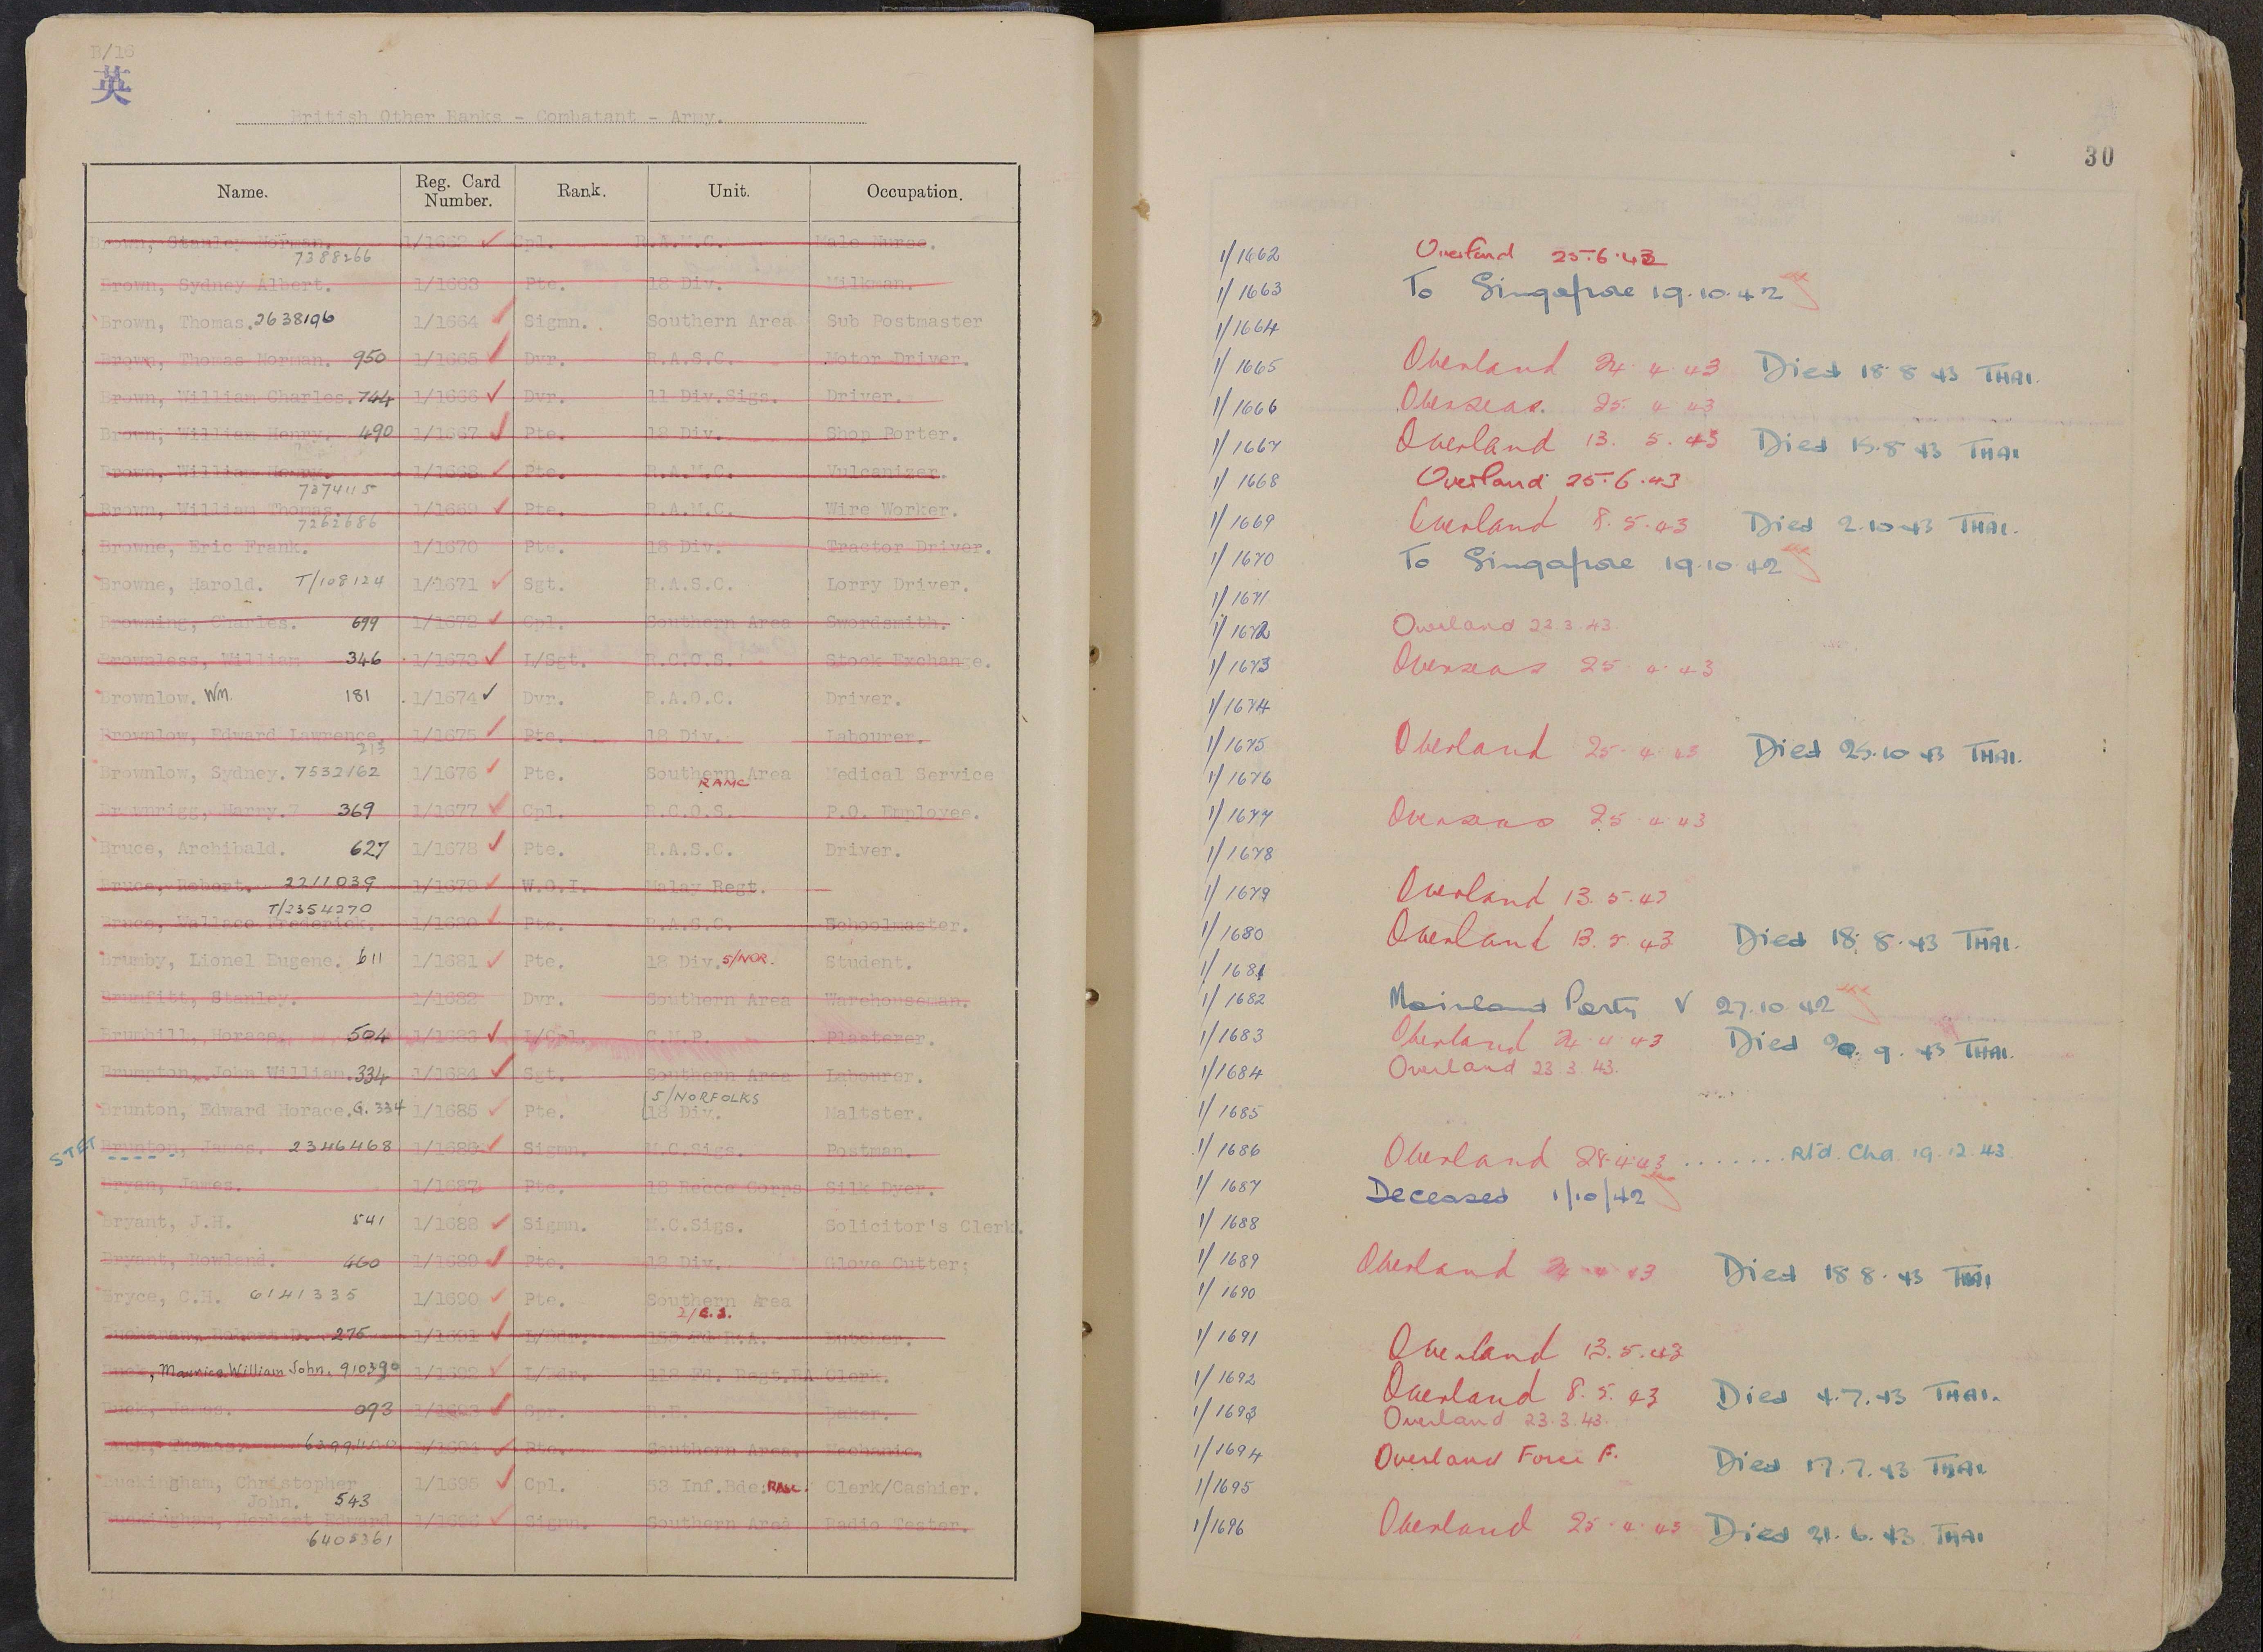 B/16
英
British Other Ranks - Combatant - Army.
Name. Reg. Card Number. Rank. Unit. Occupation.
Brown, Stanley Norman. 7388266 1/1662 Cpl. R.A.M.C. Male Nurse.
Brown, Sydney Albert. 1/1663 Pte. 18 Div. Milkman.
Brown, Thomas. 2638196 1/1664 Sigmn. Southern Area Sub Postmaster
Brown, Thomas Norman. 950 1/1665 Dvr. R.A.S.C. Motor Driver.
Brown, William Charles. 744 1/1666 Dvr. 11 Div.Sigs. Driver.
Brown, William Henry. 490 1/1667 Pte. 18 Div. Shop Porter.
Brown, William Henry. 7374115 1/1668 Pte. R.A.M.C. Vulcanizer.
Brown, William Thomas. 7262686 1/1669 Pte. R.A.M.C. Wire Worker.
Browne, Eric Frank. 1/1670 Pte. 18 Div. Tractor Driver.
Browne, Harold. T/108124 1/1671 Sgt. R.A.S.C. Lorry Driver.
Browning, Charles. 699 1/1672 Cpl. Southern Area Swordsmith.
Brownless, William 346 1/1673 L/Sgt. R.C.O.S. Stock Exchange.
Brownlow. Wm. 181 1/1674 Dvr. R.A.O.C. Driver.
Brownlow, Edward Lawrence. 213 1/1675 Pte. 18 Div. Labourer.
Brownlow, Sydney. 7532162 1/1676 Pte. Southern Area RAMC Medical Service
Brownrigg, Harry. 369 1/1677 Cpl. R.C.O.S. P.O. Employee.
Bruce, Archibald. 627 1/1678 Pte. R.A.S.C. Driver.
Bruce, Robert. 2211039 1/1679 W.O.I. Malay Regt.
Bruce, Wallace Frederick. T/2354270 1/1680 Pte. R.A.S.C. Schoolmaster.
Brumby, Lionel Eugene. 611 1/1681 Pte. 18 Div. 5/NOR. Student.
Brumfitt, Stanley. 1/1682 Dvr. Southern Area Warehouseman.
Brumhill, Horace. 504 1/1683 L/Cpl. C.M.P. Plasterer.
Brumpton, John William. 334 1/1684 Sgt. Southern Area Labourer.
Brunton, Edward Horace. G. 334 1/1685 Pte. 5/NORFOLKS 18 Div. Maltster.
STET Brunton, James. 2346468 1/1686 Sigmn. M.C.Sigs. Postman.
Bryan, James. 1/1687 Pte. 18 Recce Corps Silk Dyer.
Bryant, J.H. 541 1/1688 Sigmn. M.C.Sigs. Solicitor's Clerk.
Bryant, Rowland. 460 1/1689 Pte. 18 Div. Glove Cutter.
Bryce, C.H. 6141335 1/1690 Pte. Southern Area 2/E.S.
275 1/1691 L/Bdr. Butcher.
Buck, Maurice William John. 910390 1/1692 L/Bdr. 118 Fd. Regt.RA Clerk.
Buck, James. 093 1/1693 Spr. R.E. Baker.
1/1694 Pte. Southern Area. Mechanic.
Buckingham, Christopher John. 543 1/1695 Cpl. 53 Inf.Bde. RASC. Clerk/Cashier.
Buckingham, Herbert Edward 6405361 1/1696 Sigmn. Southern Area Radio Tester.
30
1/1662 Overland 25.6.43
1/1663 To Singapore 19.10.42
1/1664
1/1665 Overland 24 4 43 Died 18 8 43 THAI.
1/1666 Overseas. 25 4 43
1/1667 Overland 13. 5. 43 Died 15.8 43 THAI
1/1668 Overland 25.6.43
1/1669 Overland 8.5.43 Died 2.10 43 THAI.
1/1670 To Singapore 19.10.42
1/1671
1/1672 Overland 23.3.43.
1/1673 Overseas 25 4 43
1/1674
1/1675 Overland 25 4 43 Died 25.10 43 THAI.
1/1676
1/1677 Overseas 25 4 43
1/1678
1/1679 Overland 13.5.43
1/1680 Overland 13.5.43 Died 18.8.43 THAI.
1/1681
1/1682 Mainland Party V 27.10.42
1/1683 Overland 24 4 43 Died 20. 9. 43 THAI.
1/1684 Overland 23 3 43.
1/1685
1/1686 Overland 28.4.43 ....... Rt'd. Cha. 19.12.43
1/1687 Deceased 1/10/42
1/1688
1/1689 Overland 24 4 43 Died 18 8. 43 THAI
1/1690
1/1691 Overland 13.5.43
1/1692 Overland 8.5.43 Died 4.7.43 THAI.
1/1693 Overland 23.3.43.
1/1694 Overland Force F. Died 17.7.43 THAI
1/1695
1/1696 Overland 25 4 43 Died 21.6.43 THAI